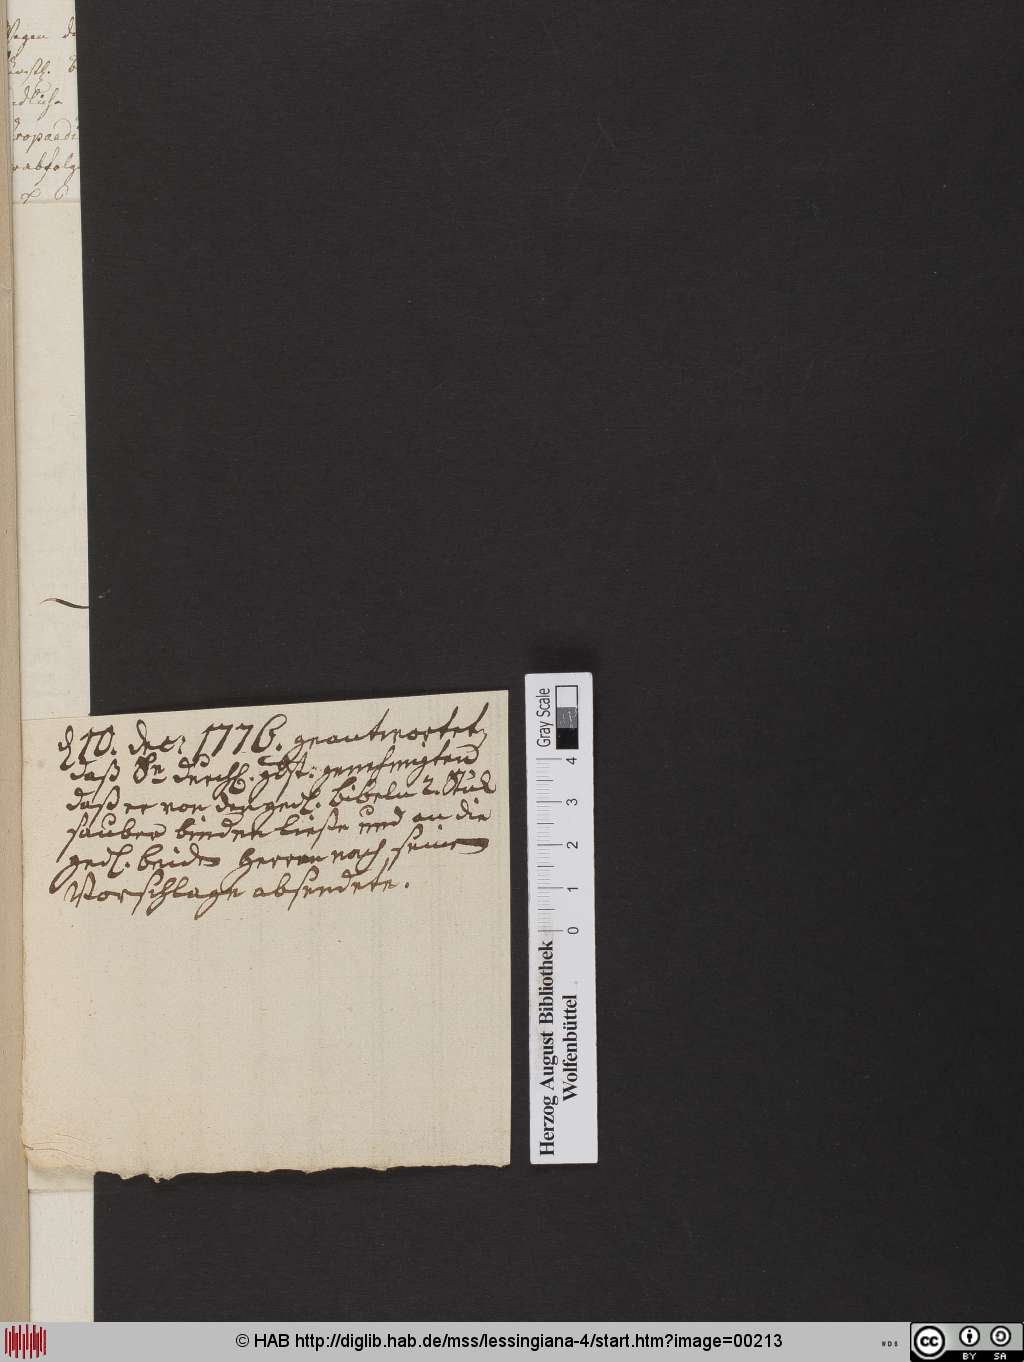 Wegen
ropaedi
rabfolg
d 10. Decr 1776. geantwortet,
daß Sr Durchl. gdst. genehmigten
daß er von den ged. Bibeln 2. Stük
sauber binden ließe und an die
ged. beiden Herren nach seinem
Vorschlage absendete.
Gray Scale
0 1 2 3 4
Herzog August Bibliothek
Wolfenbüttel
© HAB http://diglib.hab.de/mss/lessingiana-4/start.htm?image=00213
WDB
CC BY SA